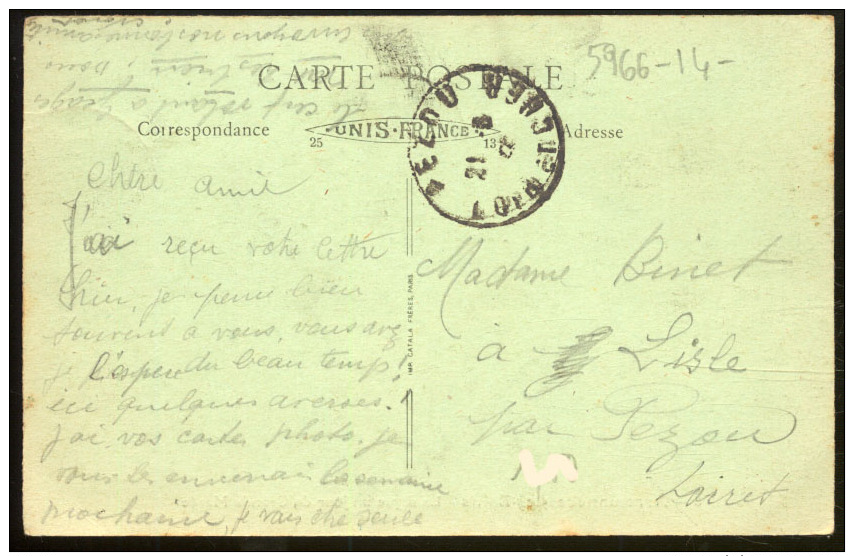 5966-14-
CARTE POSTALE
Correspondance
UNIS-FRANCE
Adresse
25
13
21
Chère amie
J'ai reçu votre lettre
hier, je pense bien
souvent à vous, vous avez
je l'espère du beau temps!
ici quelques averses.
J'ai vos cartes photo. je
vous les enverrai la semaine
prochaine, je vais être seule
IMP. CATALA FRÈRES, PARIS
Madame Binet
à Lisle
par Pezou
Loiret